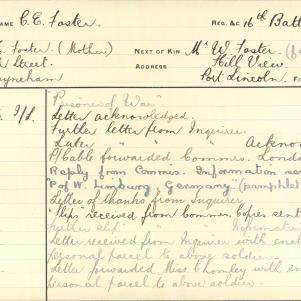 NAME C. E. Foster. REG. &C 16th Batt
E. Foster. (Mother) NEXT OF KIN Mr W. Foster.
Street. ADDRESS Hill View
Port Lincoln.
"Prisoner of War"
Letter acknowledged.
Further letter from Inquirer.
Later " " " Acknow
P/Cable forwarded Commis. Lond
Reply from Commis. Information
P of W. Limburg, Germany. (pamphlet
Letter of thanks from Inquirer
Slips received from Commis. Copies sent
Further slip " " Information
Letter received from Inquirer with
personal parcel to above soldier.
Letter forwarded Miss Chomley with en
personal parcel to above soldier.